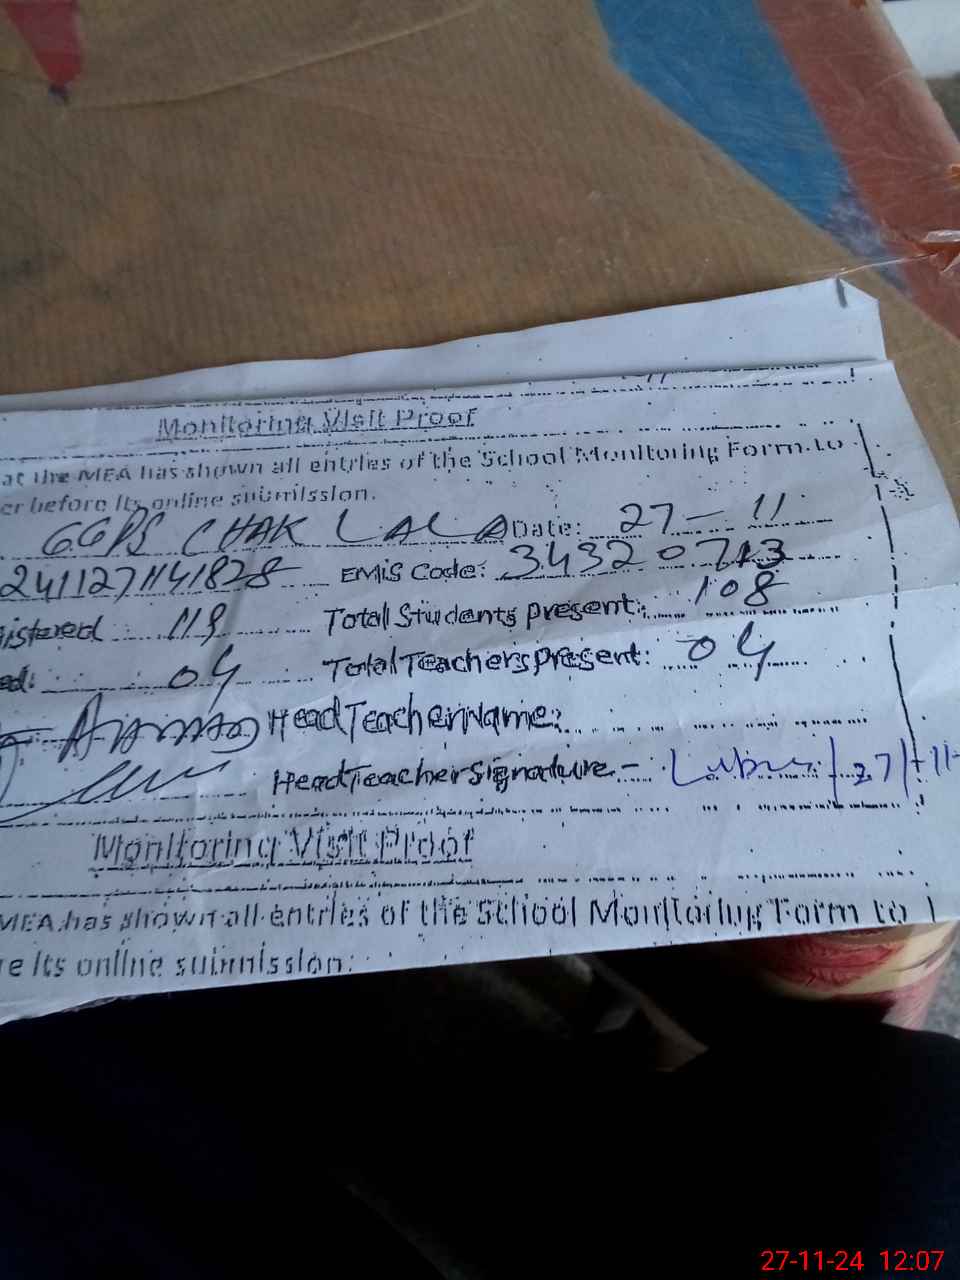 Monitoring Visit Proof
at the MEA has shown all entries of the School Monitoring Form to
er before its online submission.
GGPS CHAK LALA Date: 27-11
2411271141828 EMIS Code: 34320713
istered 119 Total Students present: 108
ed: 04 Total Teachers present: 04
Head Teacher Name:
Head Teacher Signature - 27/11-
Monitoring Visit Proof
MEA has shown all entries of the School Monitoring Form to
re its online submission.
27-11-24 12:07